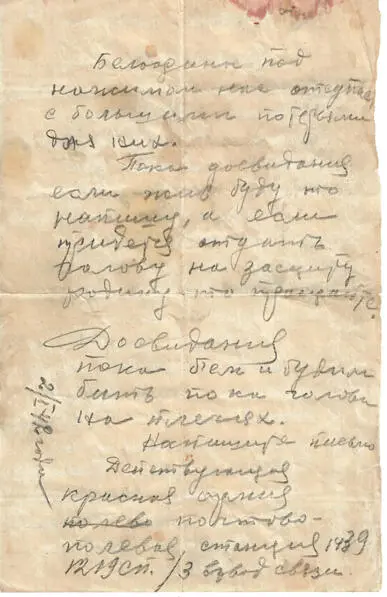 Белофинны под
нажимом нас отступае
с большими потерями
для них.
Пока досвидания
если жив буду то
напишу, а если
придется отдать
голову на защиту
родины, то прощайте.
Досвидания
пока бем и будим
бить пока голова
на плечах.
Напишите письмо
Действующая
красная армия
полево почтово-
полевая, станция 1439
1219 СП. /3 взвод связи.